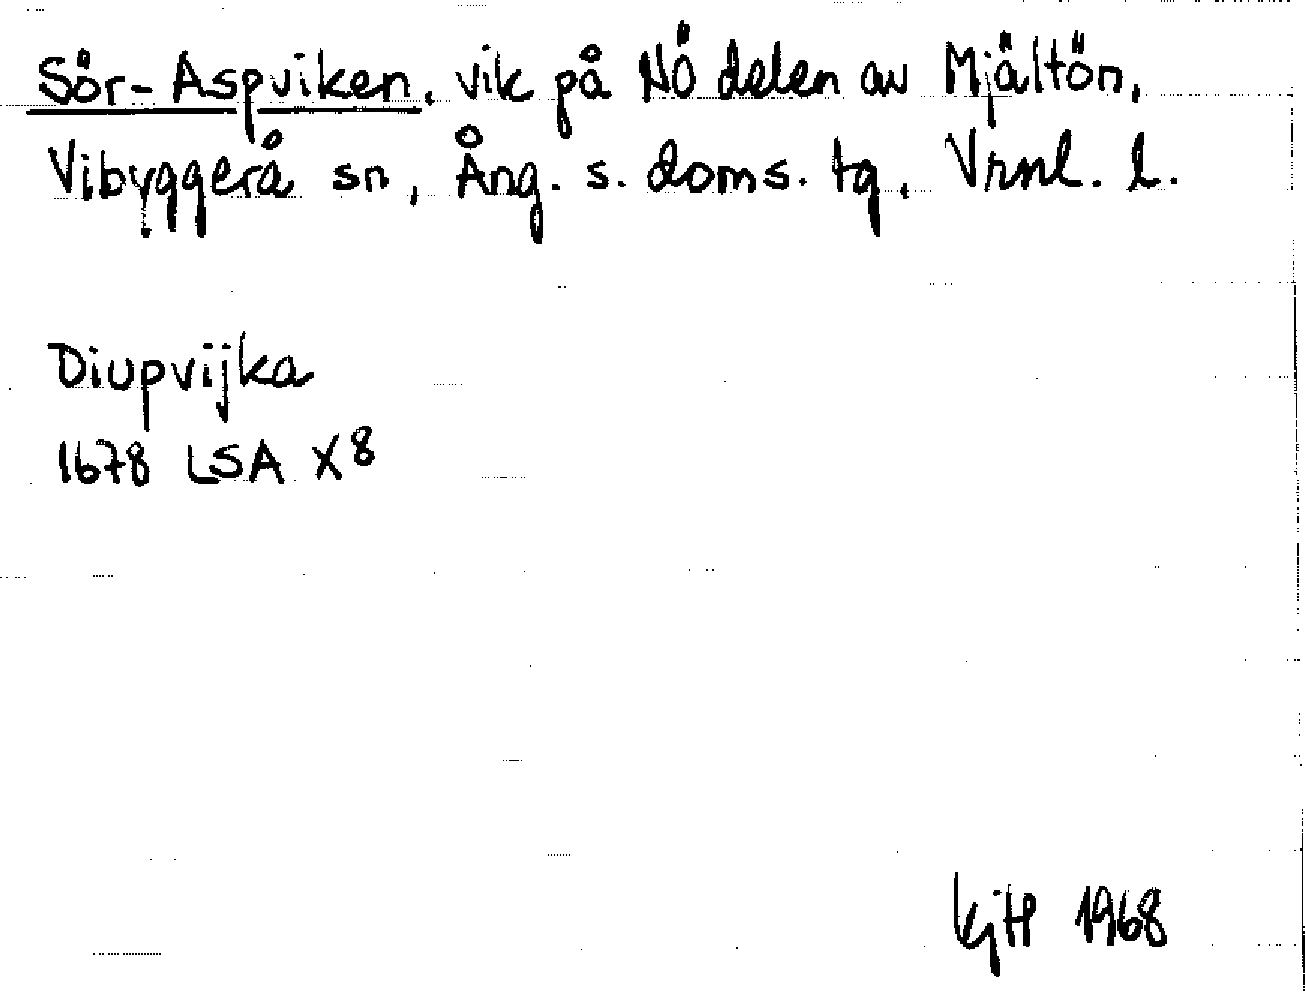 Sör-Aspviken, vik på NÖ delen av Mjältön,
Vibyggerå sn, Ång. s. doms. tg, Vrnl. l.
Diupvijka
1678 LSA X8
KjH 1968